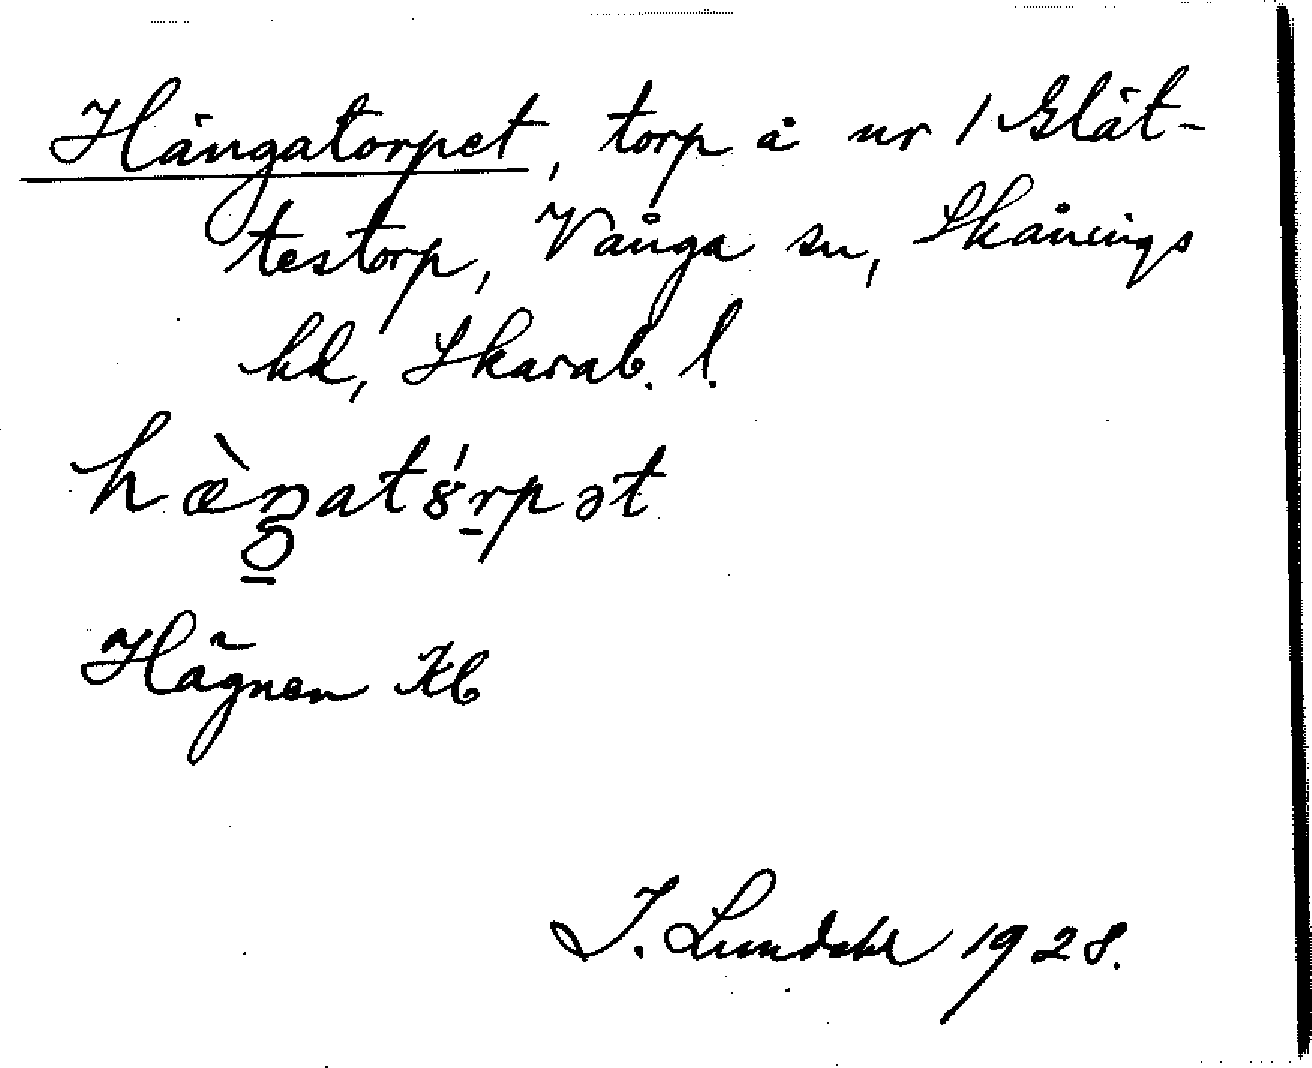 Hängatorpet, torp å nr 1 Slät-
testorp, Vånga sn, Skånings
hd, Skarab. l.
hæ̀ŋatꞷ́rpət
Hägnen Kb
I. Lundahl 1928.